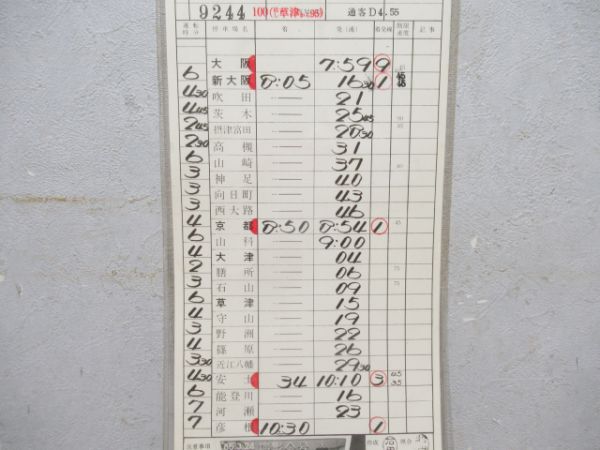 9244 100 95 通客D4.55
運転時分 停車場名 着 発(通) 着発線 制限速度 記事
大阪 7:59 9
6 新大阪 8:05 16 30 1 45
4 30 吹田 — 21
4 45 茨木 — 25 45
2 45 摂津富田 — 28 30
2 30 高槻 — 31
6 山崎 — 37
3 神足 — 40
3 向日町 — 43
3 西大路 — 46
4 京都 8:50 8:54 1 45
6 山科 — 9:00
4 大津 — 04
2 膳所 — 06 75
3 石山 — 09 75
6 草津 — 15
4 守山 — 19
3 野洲 — 22
4 篠原 — 26
3 30 近江八幡 — 29 30
4 30 安土 34 10:10 3 35
6 能登川 — 16
7 河瀬 — 23
7 彦根 10:30 1
注意事項 作成 照合